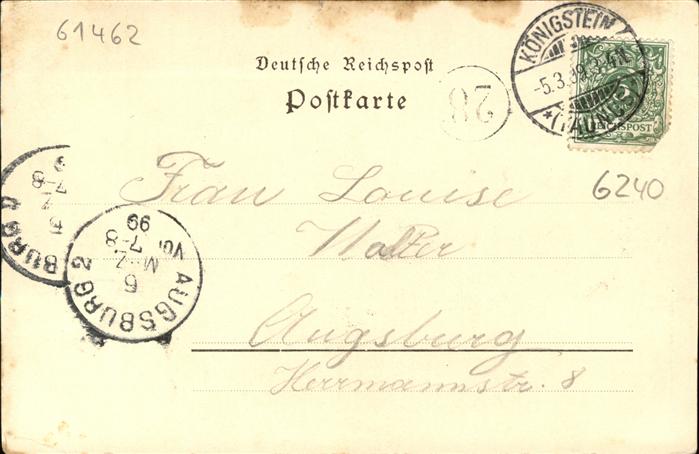 61462
Deutsche Reichspost
Postkarte
28
KÖNIGSTEIN
-5.3.99.3-4N.
*(TAUNUS)
REICHSPOST
6240
Frau Louise
Walter
Augsburg
Herrmannstr. 8
AUGSBURG 2
6
MRZ
VOR 7-8
99
BURG
7-8